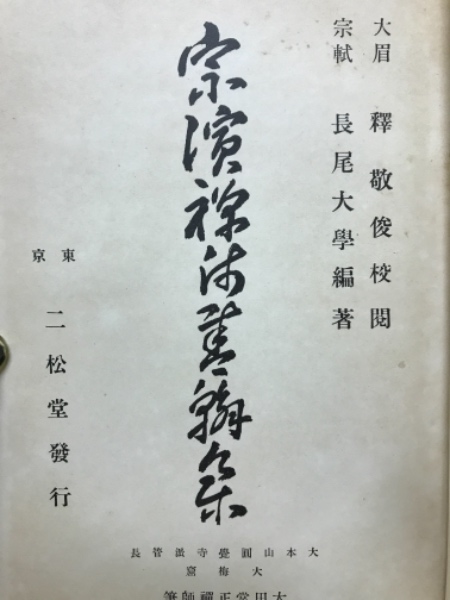 大眉 釋敬俊校閲
宗軾 長尾大學編著
宗演禪師書翰集
東京 二松堂發行
大本山圓覺寺派管長
大梅窟
太田常正禪師筆